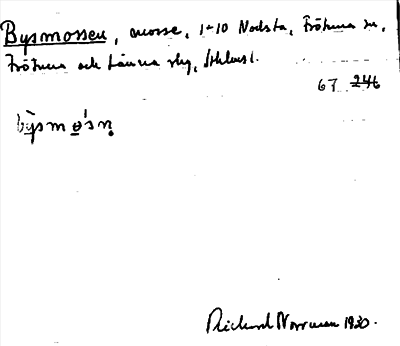 Bysmossen, mosse, 1-10 Nodsta, Frötuna sn,
Frötuna och Länna skg, Sthlms l.
67 246
bysmøsn
Richard Norrman 1930.